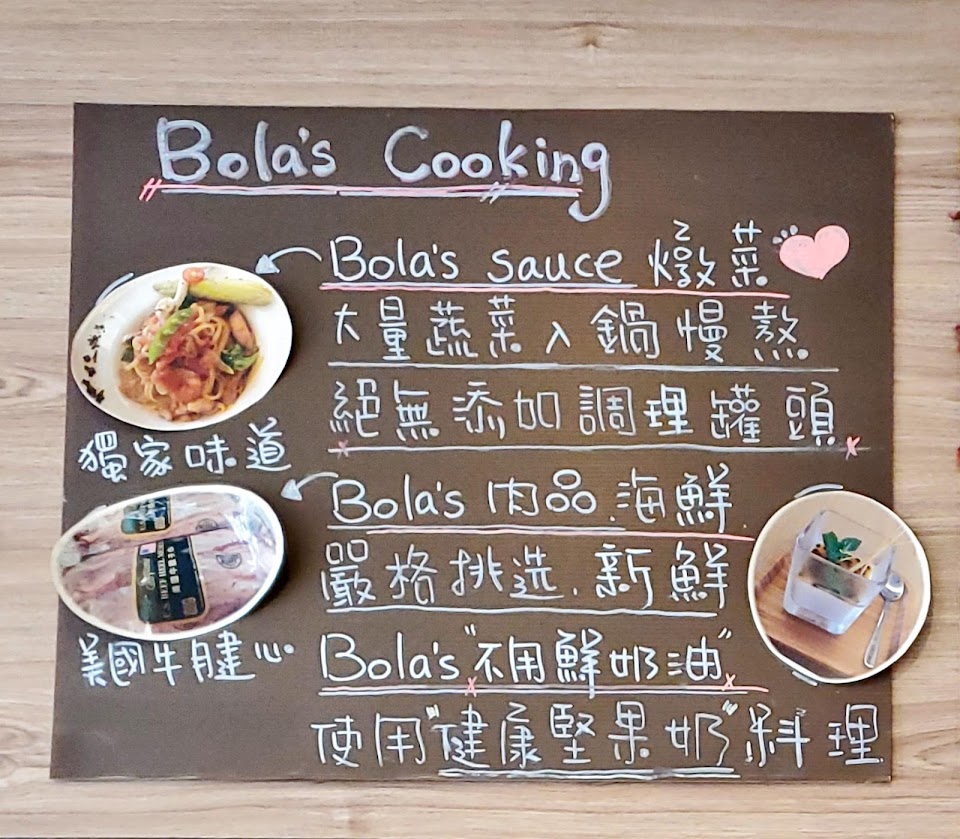 Bola's Cooking
Bola's sauce 燉菜
大量蔬菜入鍋慢熬
絕無添加調理罐頭
獨家味道
Bola's 肉品.海鮮
嚴格挑选.新鮮
美國牛腱心
Bola's "不用鮮奶油"
使用"健康堅果奶"料理